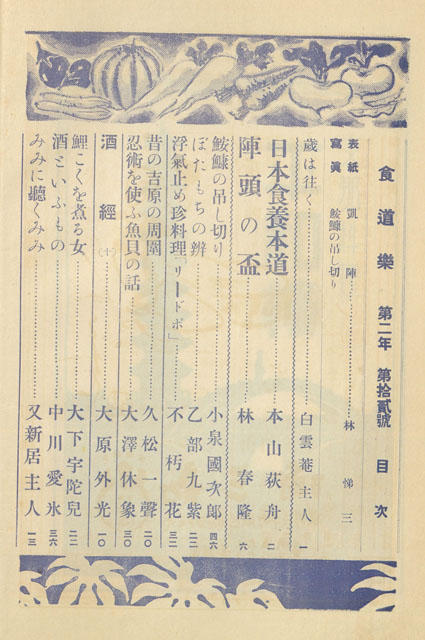 食道樂 第二年 第拾貳號 目次
表紙 凱陣……林悌三
寫眞 鮟鱇の吊し切り
歳は往く……白雲菴主人 一
日本食養本道……本山荻舟 二
陣頭の盃……林春隆 六
鮟鱇の吊し切り……小泉國次郎 四六
ぼたもちの辨……乙部九紫 二二
浮氣止め珍料理「リードボ」……不朽花 三二
昔の吉原の周圍……久松一聲 二〇
忍術を使ふ魚貝の話……大澤休象 三〇
酒經(十)……大原外光 一〇
鯉こくを煮る女……大下宇陀兒 二二
酒といふもの……中川愛氷 三六
みみに聽くみみ……又新居主人 一三